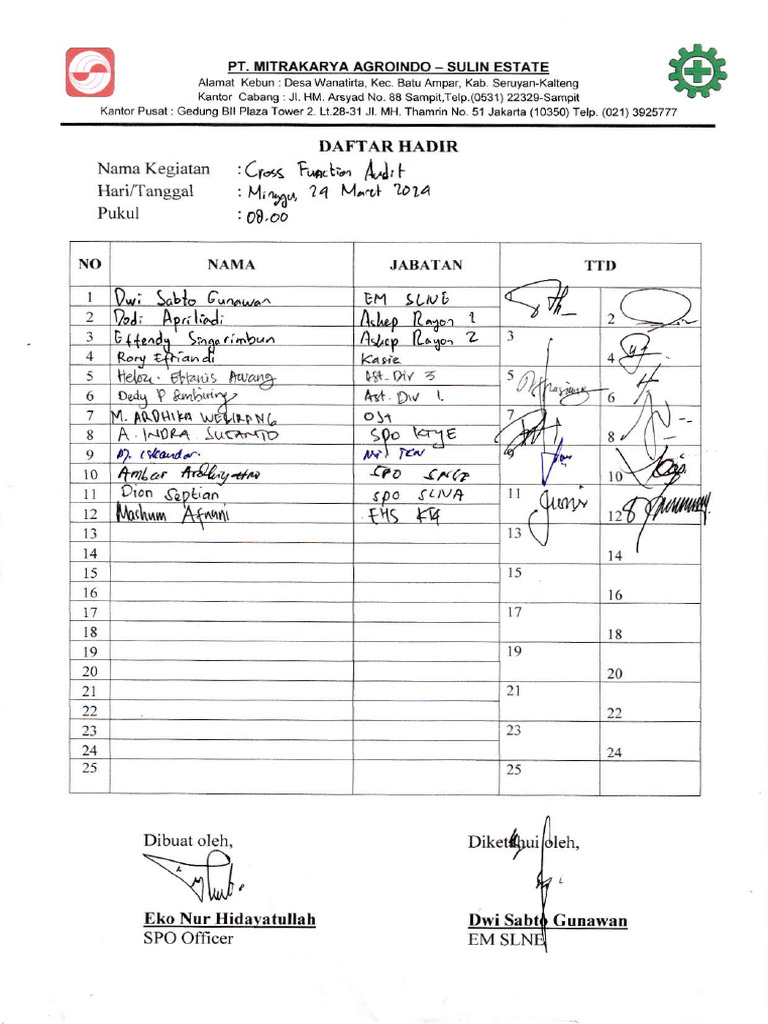 PT. MITRAKARYA AGROINDO – SULIN ESTATE
Alamat Kebun : Desa Wanatirta, Kec. Batu Ampar, Kab. Seruyan-Kalteng
Kantor Cabang : Jl. HM. Arsyad No. 88 Sampit,Telp.(0531) 22329-Sampit
Kantor Pusat : Gedung BII Plaza Tower 2. Lt.28-31 Jl. MH. Thamrin No. 51 Jakarta (10350) Telp. (021) 3925777
DAFTAR HADIR
Nama Kegiatan : Cross Function Audit
Hari/Tanggal : Minggu, 24 Maret 2024
Pukul : 08.00
NO NAMA JABATAN TTD
1 Dwi Sabto Gunawan EM SLNE
2 Dodi Apriliadi Askep Rayon 1 2
3 Effendy Singarimbun Askep Rayon 2 3
4 Rory Efriandi Kasie 4
5 Awang Ast. Div 3 5
6 Dedy P Sembiring Ast. Div 1. 6
7 M. ARDHIKA 7
8 A. INDRA SUSANTO SPO KTYE 8
9 M. Iskandar 9
10 Ambar SPO SNGE 10
11 Dion Septian SPO SLNA 11
12 Mashum Afnani EHS 12
13 13
14 14
15 15
16 16
17 17
18 18
19 19
20 20
21 21
22 22
23 23
24 24
25 25
Dibuat oleh, Diketahui oleh,
Eko Nur Hidayatullah Dwi Sabto Gunawan
SPO Officer EM SLNE